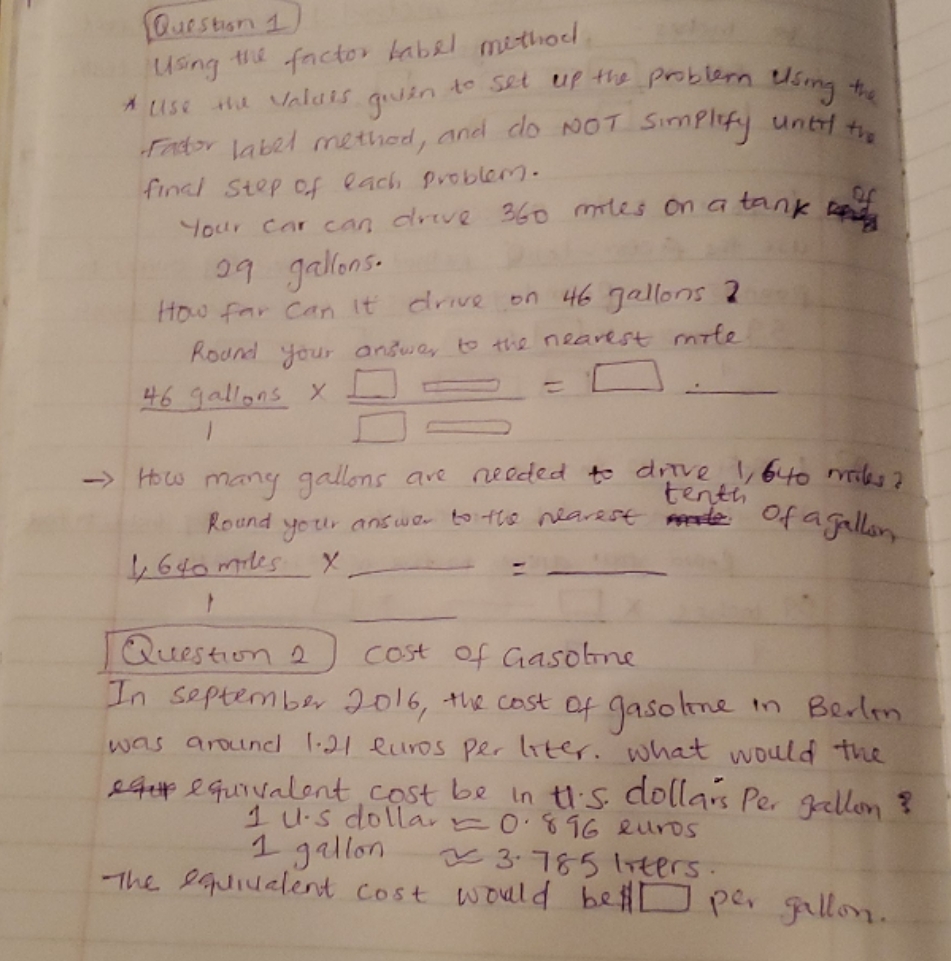 Question 1
Using the factor Label method.
* Use the Values given to set up the problem Using the
Factor label method, and do NOT Simplify until the
final Step of each problem.
Your car can drive 360 miles on a tank of
29 gallons.
How far Can it drive on 46 gallons ?
Round your answer to the nearest mile
46 gallons X = .
1
→ How many gallons are needed to drive 1,640 miles?
tenth
Round your answer to the nearest Of a gallon
1,640 miles X =
1
Question 2 Cost of Gasoline
In september 2016, the cost of gasoline in Berlin
was around 1.21 euros per liter. What would the
equivalent cost be in U.S. dollars Per gallon ?
1 U.S dollar ≈ 0.896 euros
1 gallon ≈ 3.785 liters.
The equivalent cost would be $ per gallon.